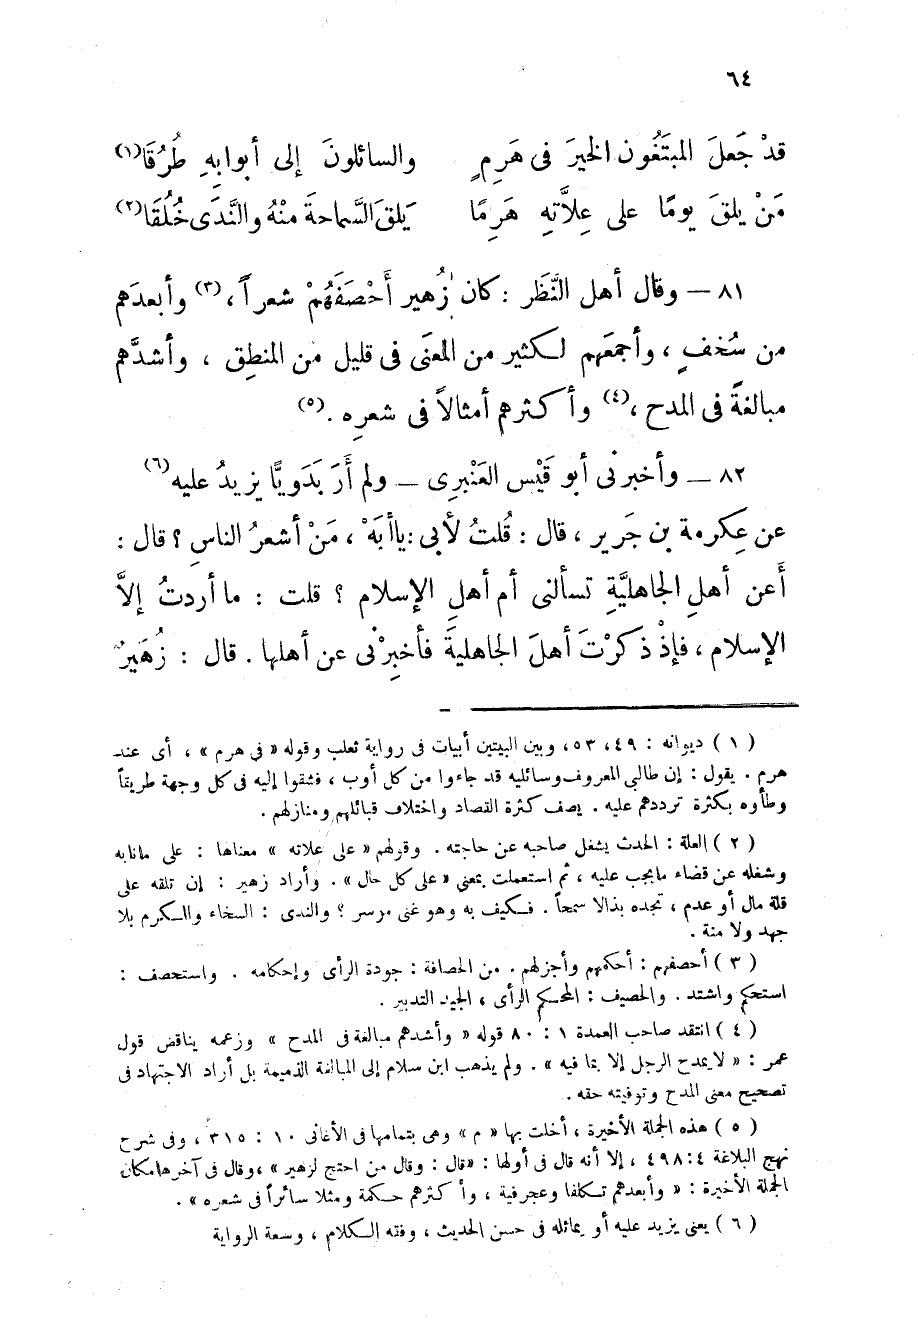 ٦٤
قدْ جَعلَ المبتَغُون الخيرَ فى هَرِمٍ والسائلونَ إلى أبوابِهِ طُرُقَا(١)
مَنْ يلقَ يومًا على عِلاَّتهِ هَرِمًا يَلقَ السَّماحةَ منْهُ والنَّدَى خُلُقَا(٢)
٨١ — وقال أهل النَّظَر : كان زُهير أَحْصَفَهُمْ شعراً ،(٣) وأبعدَهم
من سُخفٍ ، وأجمَعَهم لكثير من المعنَى فى قليل من المنطِق ، وأشدَّهم
مبالغةً فى المدح ،(٤) وأكثرهم أمثالاً فى شعرِه .(٥)
٨٢ — وأخبرنى أبو قَيْس العَنْبرِى — ولم أَرَ بَدَويًّا يزيدُ عليه(٦)
عن عِكرمة بن جَرير ، قال : قُلتُ لأبى : ياأبَهْ ، مَنْ أشعرُ الناسِ ؟ قال :
أَعن أهلِ الجاهليَّةِ تسألنى أم أهلِ الإسلام ؟ قلت : ما أردتُ إلاَّ
الإسلام ، فإذْ ذكرْتَ أهلَ الجاهليةَ فأخبِرْنى عن أهلها . قال : زُهَيرٌ
( ١ ) ديوانه : ٤٩ ، ٥٣ ، وبين البيتين أبيات فى رواية ثعلب وقوله « فى هرم » ، أى عند
هرم . يقول : إن طالبى المعروف وسائليه قد جاءوا من كل أوب ، فشقوا إليه فى كل وجهة طريقاً
وطأوه بكثرة ترددهم عليه . يصف كثرة القصاد واختلاف قبائلهم ومنازلهم .
( ٢ ) العلة : الحدث يشغل صاحبه عن حاجته . وقولهم « على علاته » معناها : على مانابه
وشغله عن قضاء مايجب عليه ، ثم استعملت بمعنى « على كل حال » . وأراد زهير : إن تلقه على
قلة مال أو عدم ، تجده بذالا سمحاً . فكيف به وهو غنى موسر ؟ والندى : السخاء والكرم بلا
جهد ولا منة .
( ٣ ) أحصفهم : أحكمهم وأجزلهم . من الحصافة : جودة الرأى وإحكامه . واستحصف :
استحكم واشتد . والحصيف : المحكم الرأى ، الجيد التدبير .
( ٤ ) انتقد صاحب العمدة ١ : ٨٠ قوله « وأشدهم مبالغة فى المدح » وزعمه يناقض قول
عمر : « لايمدح الرجل إلا بما فيه » . ولم يذهب ابن سلام إلى المبالغة الذميمة بل أراد الاجتهاد فى
تصحيح معنى المدح وتوفيته حقه .
( ٥ ) هذه الجملة الأخيرة ، أخلت بها « م » وهى بتمامها فى الأغانى ١٠ : ٣١٥ ، وفى شرح
نهج البلاغة ٤ : ٤٩٨ ، إلا أنه قال فى أولها : «قال : وقال من احتج لزهير » ، وقال فى آخرها مكان
الجملة الأخيرة : « وأبعدهم تكلفا وعجرفية ، وأكثرهم حكمة ومثلا سائراً فى شعره » .
( ٦ ) يعنى يزيد عليه أو يماثله فى حسن الحديث ، وفقه الكلام ، وسعة الرواية